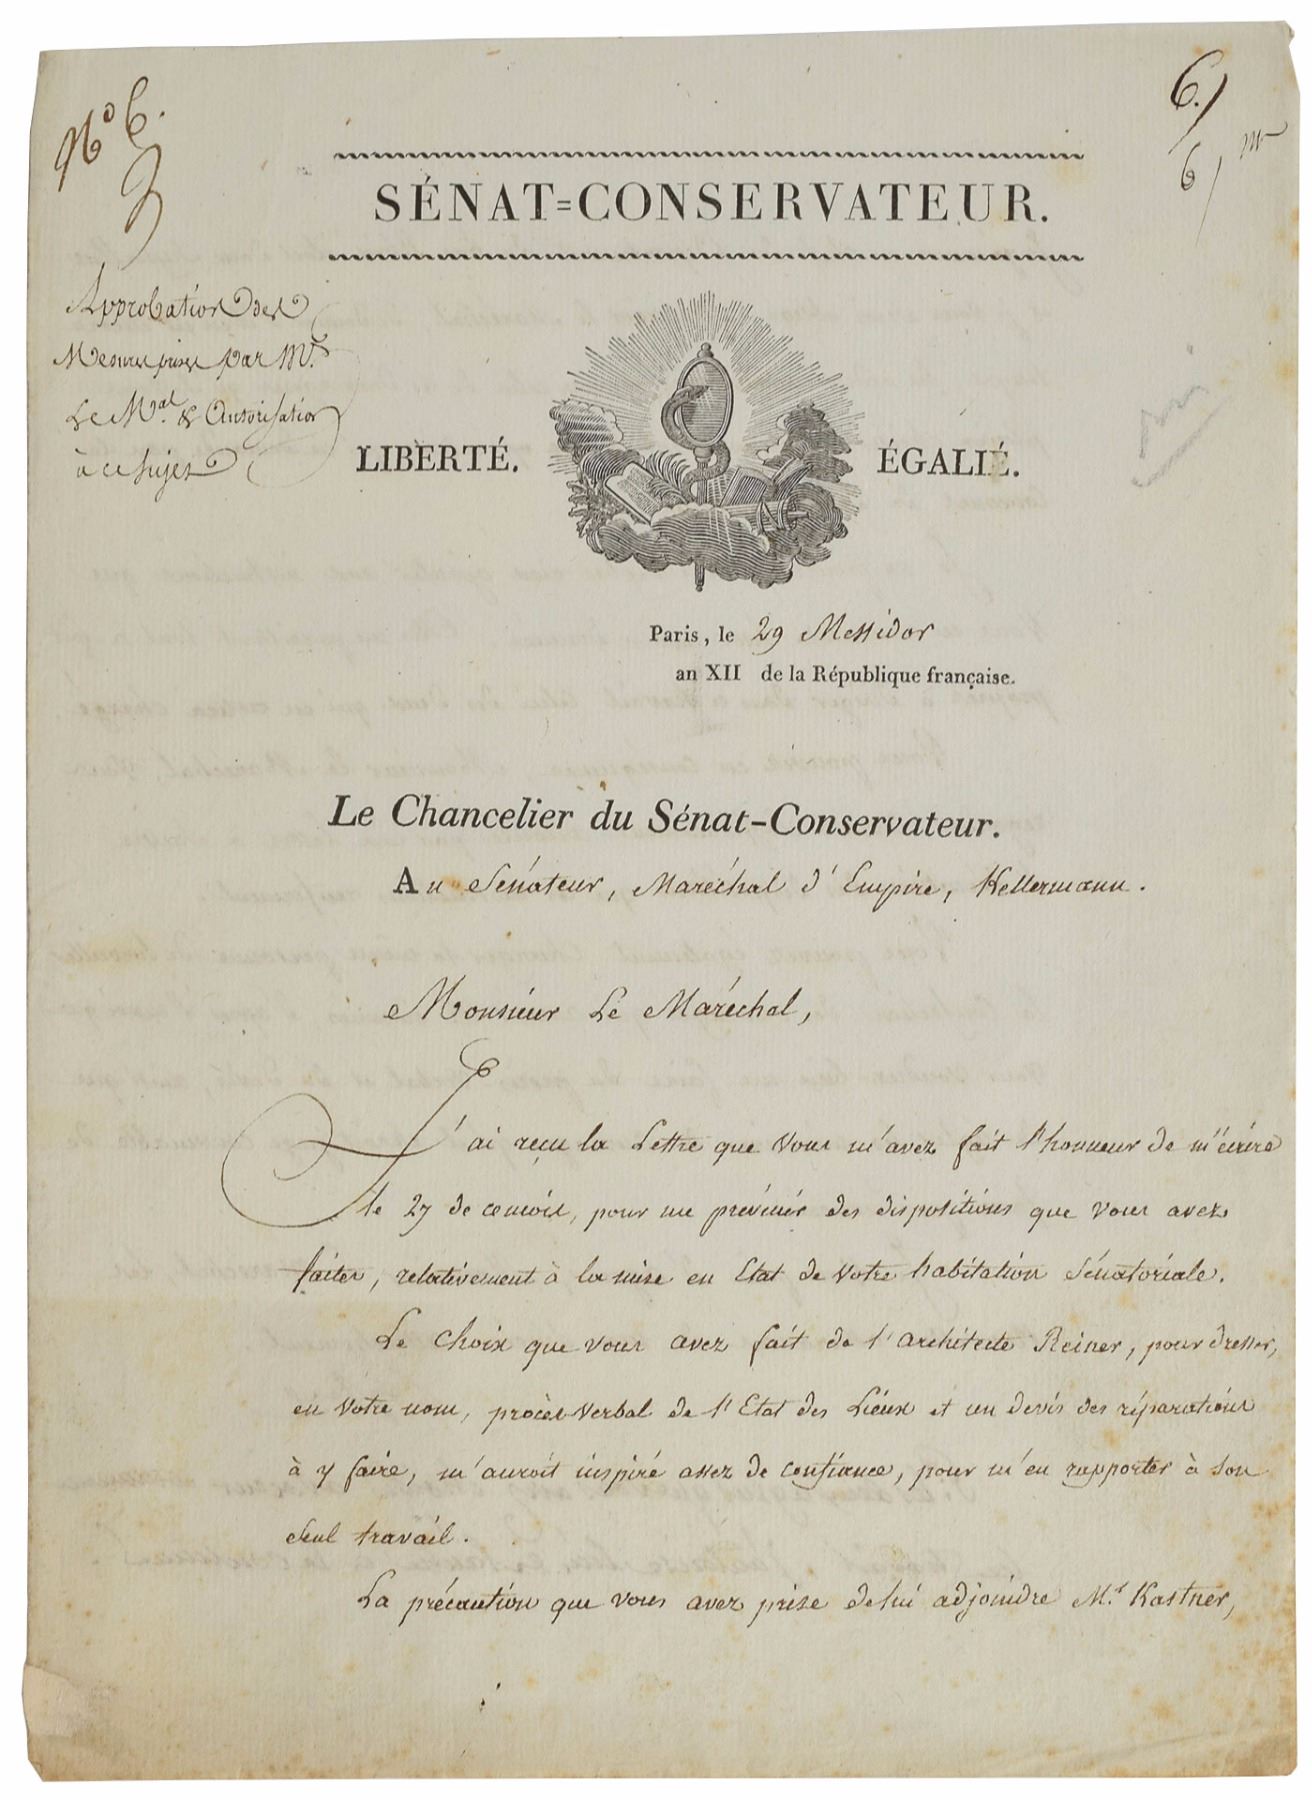 N° 6.
6.
6
SÉNAT=CONSERVATEUR.
Approbation des
Mesures prises par Mr.
Le Mal. & Autorisation
à ce sujet
LIBERTÉ. ÉGALIÉ.
Paris, le 29 Messidor
an XII de la République française.
Le Chancelier du Sénat-Conservateur.
Au Sénateur, Maréchal d'Empire, Kellermann.
Monsieur Le Maréchal,
J'ai reçu la Lettre que Vous m'avez fait l'honneur de m'écrire
le 27 de ce mois, pour me prévenir des dispositions que vous avez
faites, relativement à la mise en Etat de Votre habitation Sénatoriale.
Le Choix que vous avez fait de l'architecte Reiner, pour dresser,
en Votre nom, procès verbal de l'Etat des Lieux et un devis des réparations
à y faire, m'auroit inspiré assez de confiance, pour m'en rapporter à son
seul travail.
La précaution que vous avez prise de lui adjoindre M.r Kastner,